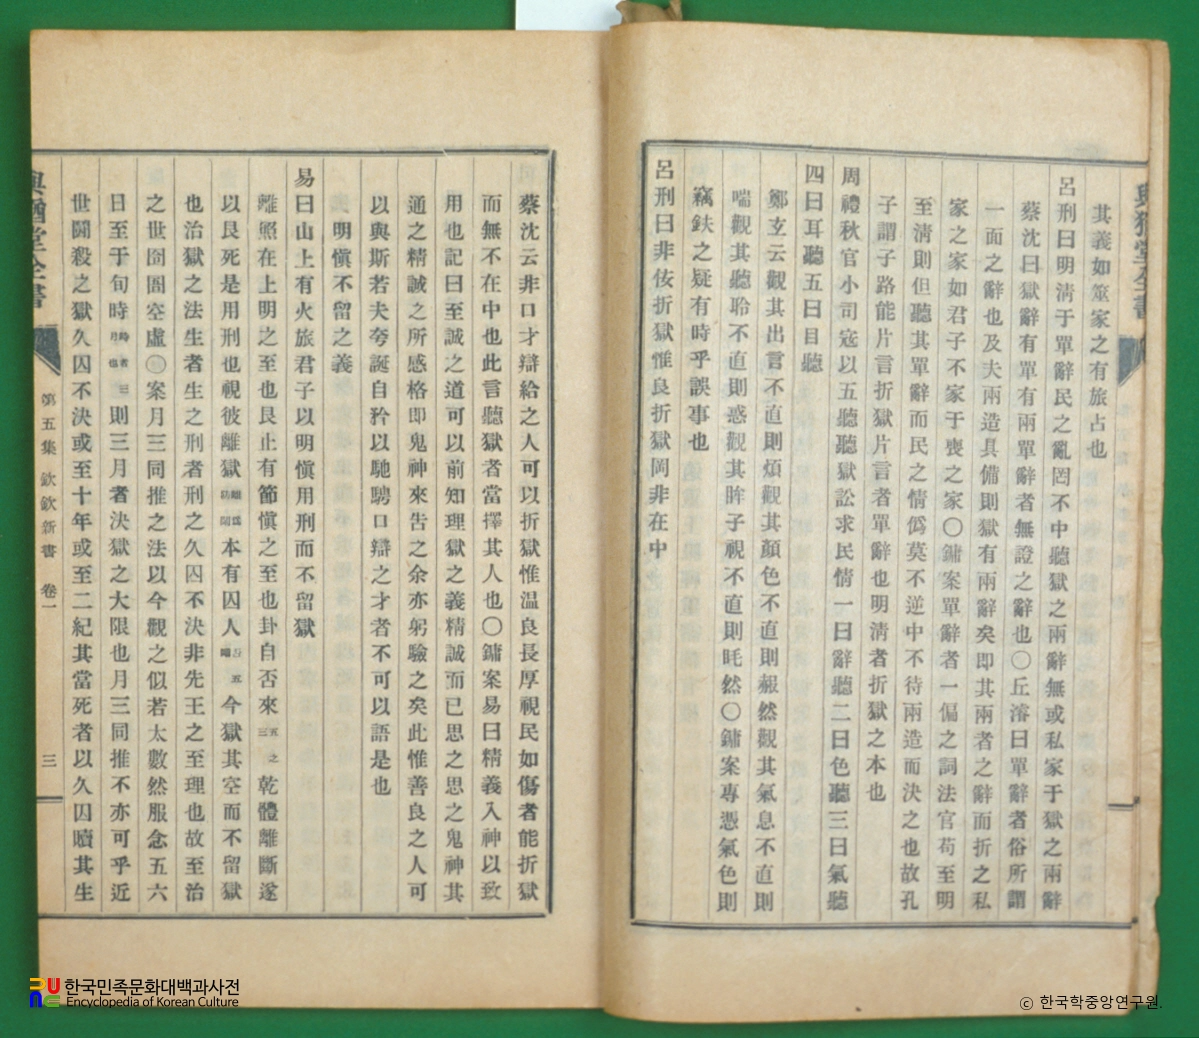 其義如筮家之有旅占也
呂刑曰明淸于單辭民之亂罔不中聽獄之兩辭無或私家于獄之兩辭
蔡沈曰獄辭有單有兩單辭者無證之辭也〇丘濬曰單辭者俗所謂
一面之辭也及夫兩造具備則獄有兩辭矣即其兩者之辭而折之私
家之家如君子不家于喪之家〇鏞案單辭者一偏之詞法官苟至明
至淸則但聽其單辭而民之情僞莫不逆中不待兩造而決之也故孔
子謂子路能片言折獄片言者單辭也明淸者折獄之本也
周禮秋官小司寇以五聽聽獄訟求民情一曰辭聽二曰色聽三曰氣聽
四曰耳聽五曰目聽
鄭玄云觀其出言不直則煩觀其顏色不直則赧然觀其氣息不直則
喘觀其聽聆不直則惑觀其眸子視不直則眊然〇鏞案專憑氣色則
竊鈇之疑有時乎誤事也
呂刑曰非佞折獄惟良折獄罔非在中
蔡沈云非口才辯給之人可以折獄惟溫良長厚視民如傷者能折獄
而無不在中也此言聽獄者當擇其人也〇鏞案易曰精義入神以致
用也記曰至誠之道可以前知理獄之義精誠而已思之思之鬼神其
通之精誠之所感格即鬼神來告之余亦躬驗之矣此惟善良之人可
以與斯若夫夸誕自矜以馳騁口辯之才者不可以語是也
明愼不留之義
易曰山上有火旅君子以明愼用刑而不留獄
離照在上明之至也艮止有節愼之至也卦自否來三五之乾體離斷遂
以艮死是用刑也視彼離獄離爲防閑本有囚人今獄其空而不留獄
也治獄之法生者生之刑者刑之久囚不決非先王之至理也故至治
之世囹圄空虛〇案月三同推之法以今觀之似若太數然服念五六
日至于旬時時者三月也則三月者決獄之大限也月三同推不亦可乎近
世鬪殺之獄久囚不決或至十年或至二紀其當死者以久囚贖其生
與猶堂全書
第五集 欽欽新書 卷一
三
與猶堂全書
한국민족문화대백과사전
Encyclopedia of Korean Culture
ⓒ 한국학중앙연구원.